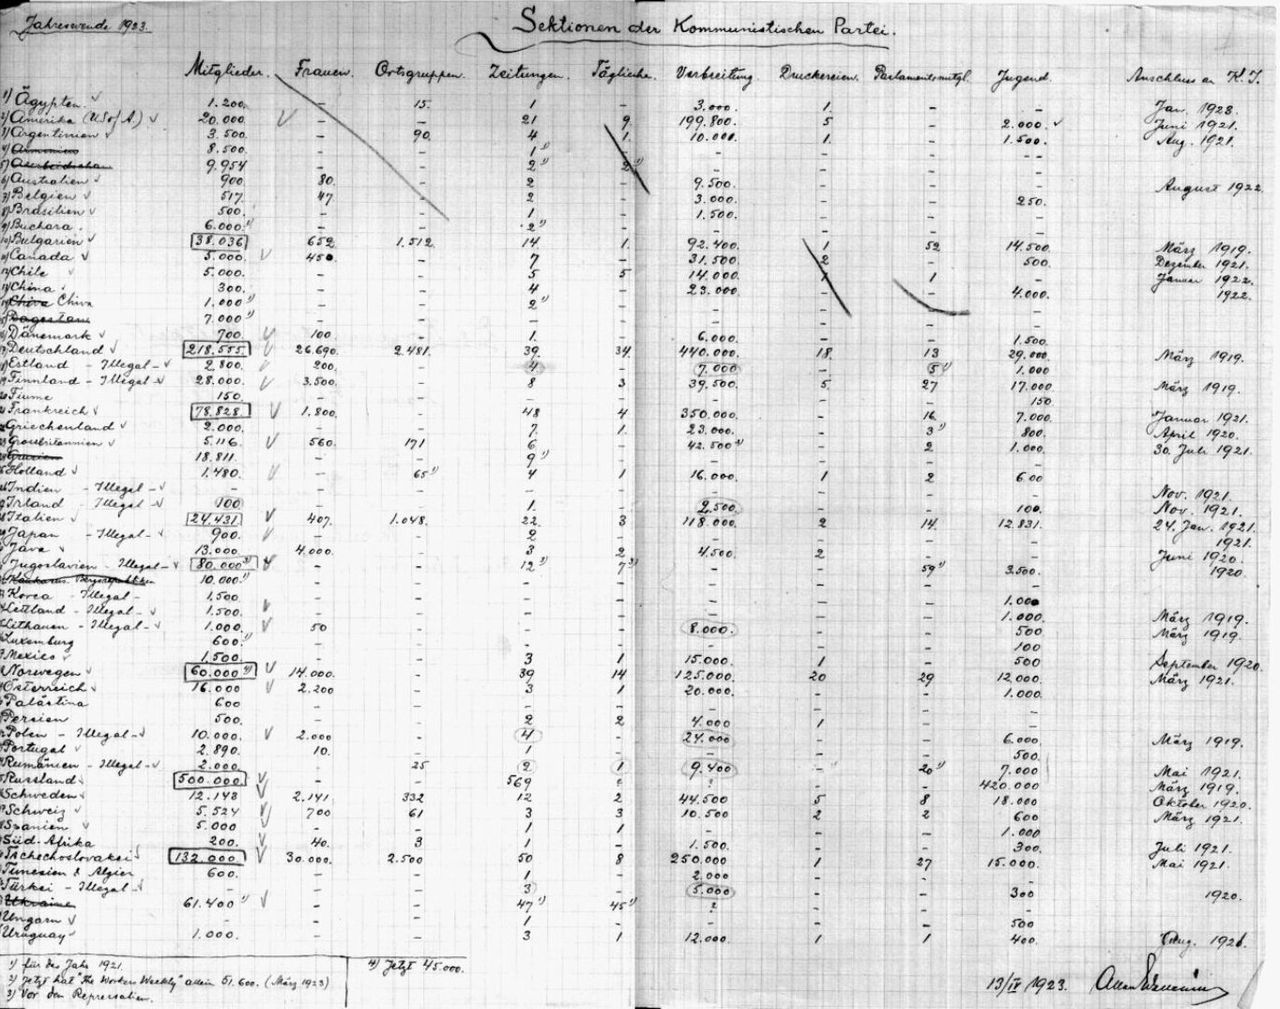 Jahreswende 1923.
Sektionen der Kommunistischen Partei.
Mitglieder. Frauen. Ortsgruppen. Zeitungen. Tägliche. Verbreitung. Druckereien. Parlamentsmitgl. Jugend. Anschluss an K. I.
1) Ägypten. 1.200. - 15. 1 - 3.000. 1. - - Jan. 1923.
2) Amerika (U.S of A.) 20.000. - - 21 9. 199.800. 5 - 2.000. Juni 1921.
3) Argentinien 3.500. - 90. 4 1. 10.000. 1. - 1.500. Aug. 1921.
4) Armenien 8.500. - - 1¹⁾ - - - - -
5) Aserbeidschan 9.954 - - 2¹⁾ 2¹⁾ - - - -
6) Australien 900. 80. - 2 - 9.500. - - - August 1922.
7) Belgien 517. 47. - 2 - 3.000. - - 250.
8) Brasilien 500. - - 1. - 1.500. - - -
9) Buchara. 6.000.¹⁾ - - 2¹⁾ - - - - -
10) Bulgarien 38.036 652. 1.512. 14. 1. 92.400. 1 52 14.500. März 1919.
11) Canada 5.000. 450. - 7 - 31.500. 2 - 500. Dezember 1921.
12) Chile 5.000. - - 5 5 14.000. 1 1 - Januar 1922.
13) China 300. - - 4 - 23.000. - - 4.000. 1922.
14) Chiva Chiva 1.000¹⁾ - - 2¹⁾ - - - - -
15) Dagestan 7.000¹⁾ - - - - - - - -
16) Dänemark 700. 100. - 1. - 6.000. - - 1.500.
17) Deutschland 218.555. 26.690. 2.481. 39. 34. 440.000. 18. 13 29.000. März 1919.
18) Estland - Illegal - 2.800. 200. - 4 - 7.000 - 5¹⁾ 1.000
19) Finnland - Illegal - 28.000. 3.500. - 8 3 39.500. 5. 27 17.000. März 1919.
20) Fiume 150. - - - - - - - 150.
21) Frankreich 78.828. 1.800. - 48 4 350.000. - 16 7.000. Januar 1921.
Griechenland 2.000. - - 7. 1. 23.000. - 3¹⁾ 800. April 1920.
23) Grossbritannien 5.116. 560. 171 6 - 42.500²⁾ - 2 1.000. 30. Juli 1921.
Grusien 18.811. - - 9¹⁾ - - - - -
Holland 1.480. - 65¹⁾ 4 1 16.000. 1 2 600
Indien - Illegal - - - - - - - - - - Nov. 1921.
Irland - Illegal 100 - - 1. - 2.500. - - 100. Nov. 1921.
Italien 24.431. 407. 1.048. 22. 3 118.000. 2 14 12.831. 24. Jan. 1921.
Japan - Illegal - 900. - - 2 - - - - - 1921.
Java 13.000. 4.000. - 3 2 4.500. 2 - - Juni 1920.
Jugoslavien - Illegal - 80.000³⁾ - - 12¹⁾ 7³⁾ - - 59³⁾ 3.500. 1920.
Kaukasus. Bergrepubliken 10.000¹⁾ - - - - - - - -
Korea - Illegal - 1.500. - - - - - - - 1.000
Lettland - Illegal - 1.500. - - - - - - - 1.000. März 1919.
Lithauen - Illegal - 1.000. 50 - - - 8.000. - - 500 März 1919.
Luxemburg 600.¹⁾ - - - - - - - 100
Mexico 1.500. - - 3 1 15.000. 1 - 500 September 1920.
Norwegen 60.000⁴⁾ 14.000. - 39 14 125.000. 20 29 12.000. März 1921.
Österreich 16.000 2.200 - 3 1 20.000. - - 1.000.
Palästina 600 - - - - - - - -
Persien 500. - - 2 2 4.000 1 - -
Polen - Illegal - 10.000. 2.000 - 4 - 24.000. - - 6.000. März 1919.
Portugal 2.890. 10. - 1 - - - - 500.
Rumänien - Illegal - 2.000. 25 2 1 9.400 - 20¹⁾ 7.000 Mai 1921.
Russland 500.000. - - 569 ? ? - - 420.000 März 1919.
Schweden 12.148 2.141. 332 12 2 44.500 5 8 18.000 Oktober 1920.
Schweiz 5.524 700 61 3 3 10.500 2 2 600 März 1921.
Spanien 5.000 - - 1 1 - - - 1.000
Süd-Afrika 200. 40. 3 1 - 1.500. - - 300. Juli 1921.
Tschechoslovakei 132.000. 30.000. 2.500 50 8 250.000 1 27 15.000. Mai 1921.
Tunesien & Algier 600. - - 1 - 2.000 - - -
Türkei - Illegal - - - - 3 - 5.000 - - 300 1920.
Ukraine 61.400¹⁾ - - 47¹⁾ 45¹⁾ ? - - -
Ungarn - - - 1 - - - - 500
Uruguay 1.000. - - 3 1 12.000. 1 1 400. Aug. 1921.
1) für das Jahr 1921.
2) Jetzt hat "The Workers Weekly" allein 51.600. (März 1923)
3) Vor den Repressalien.
4) Jetzt 45.000.
13/IV 1923.